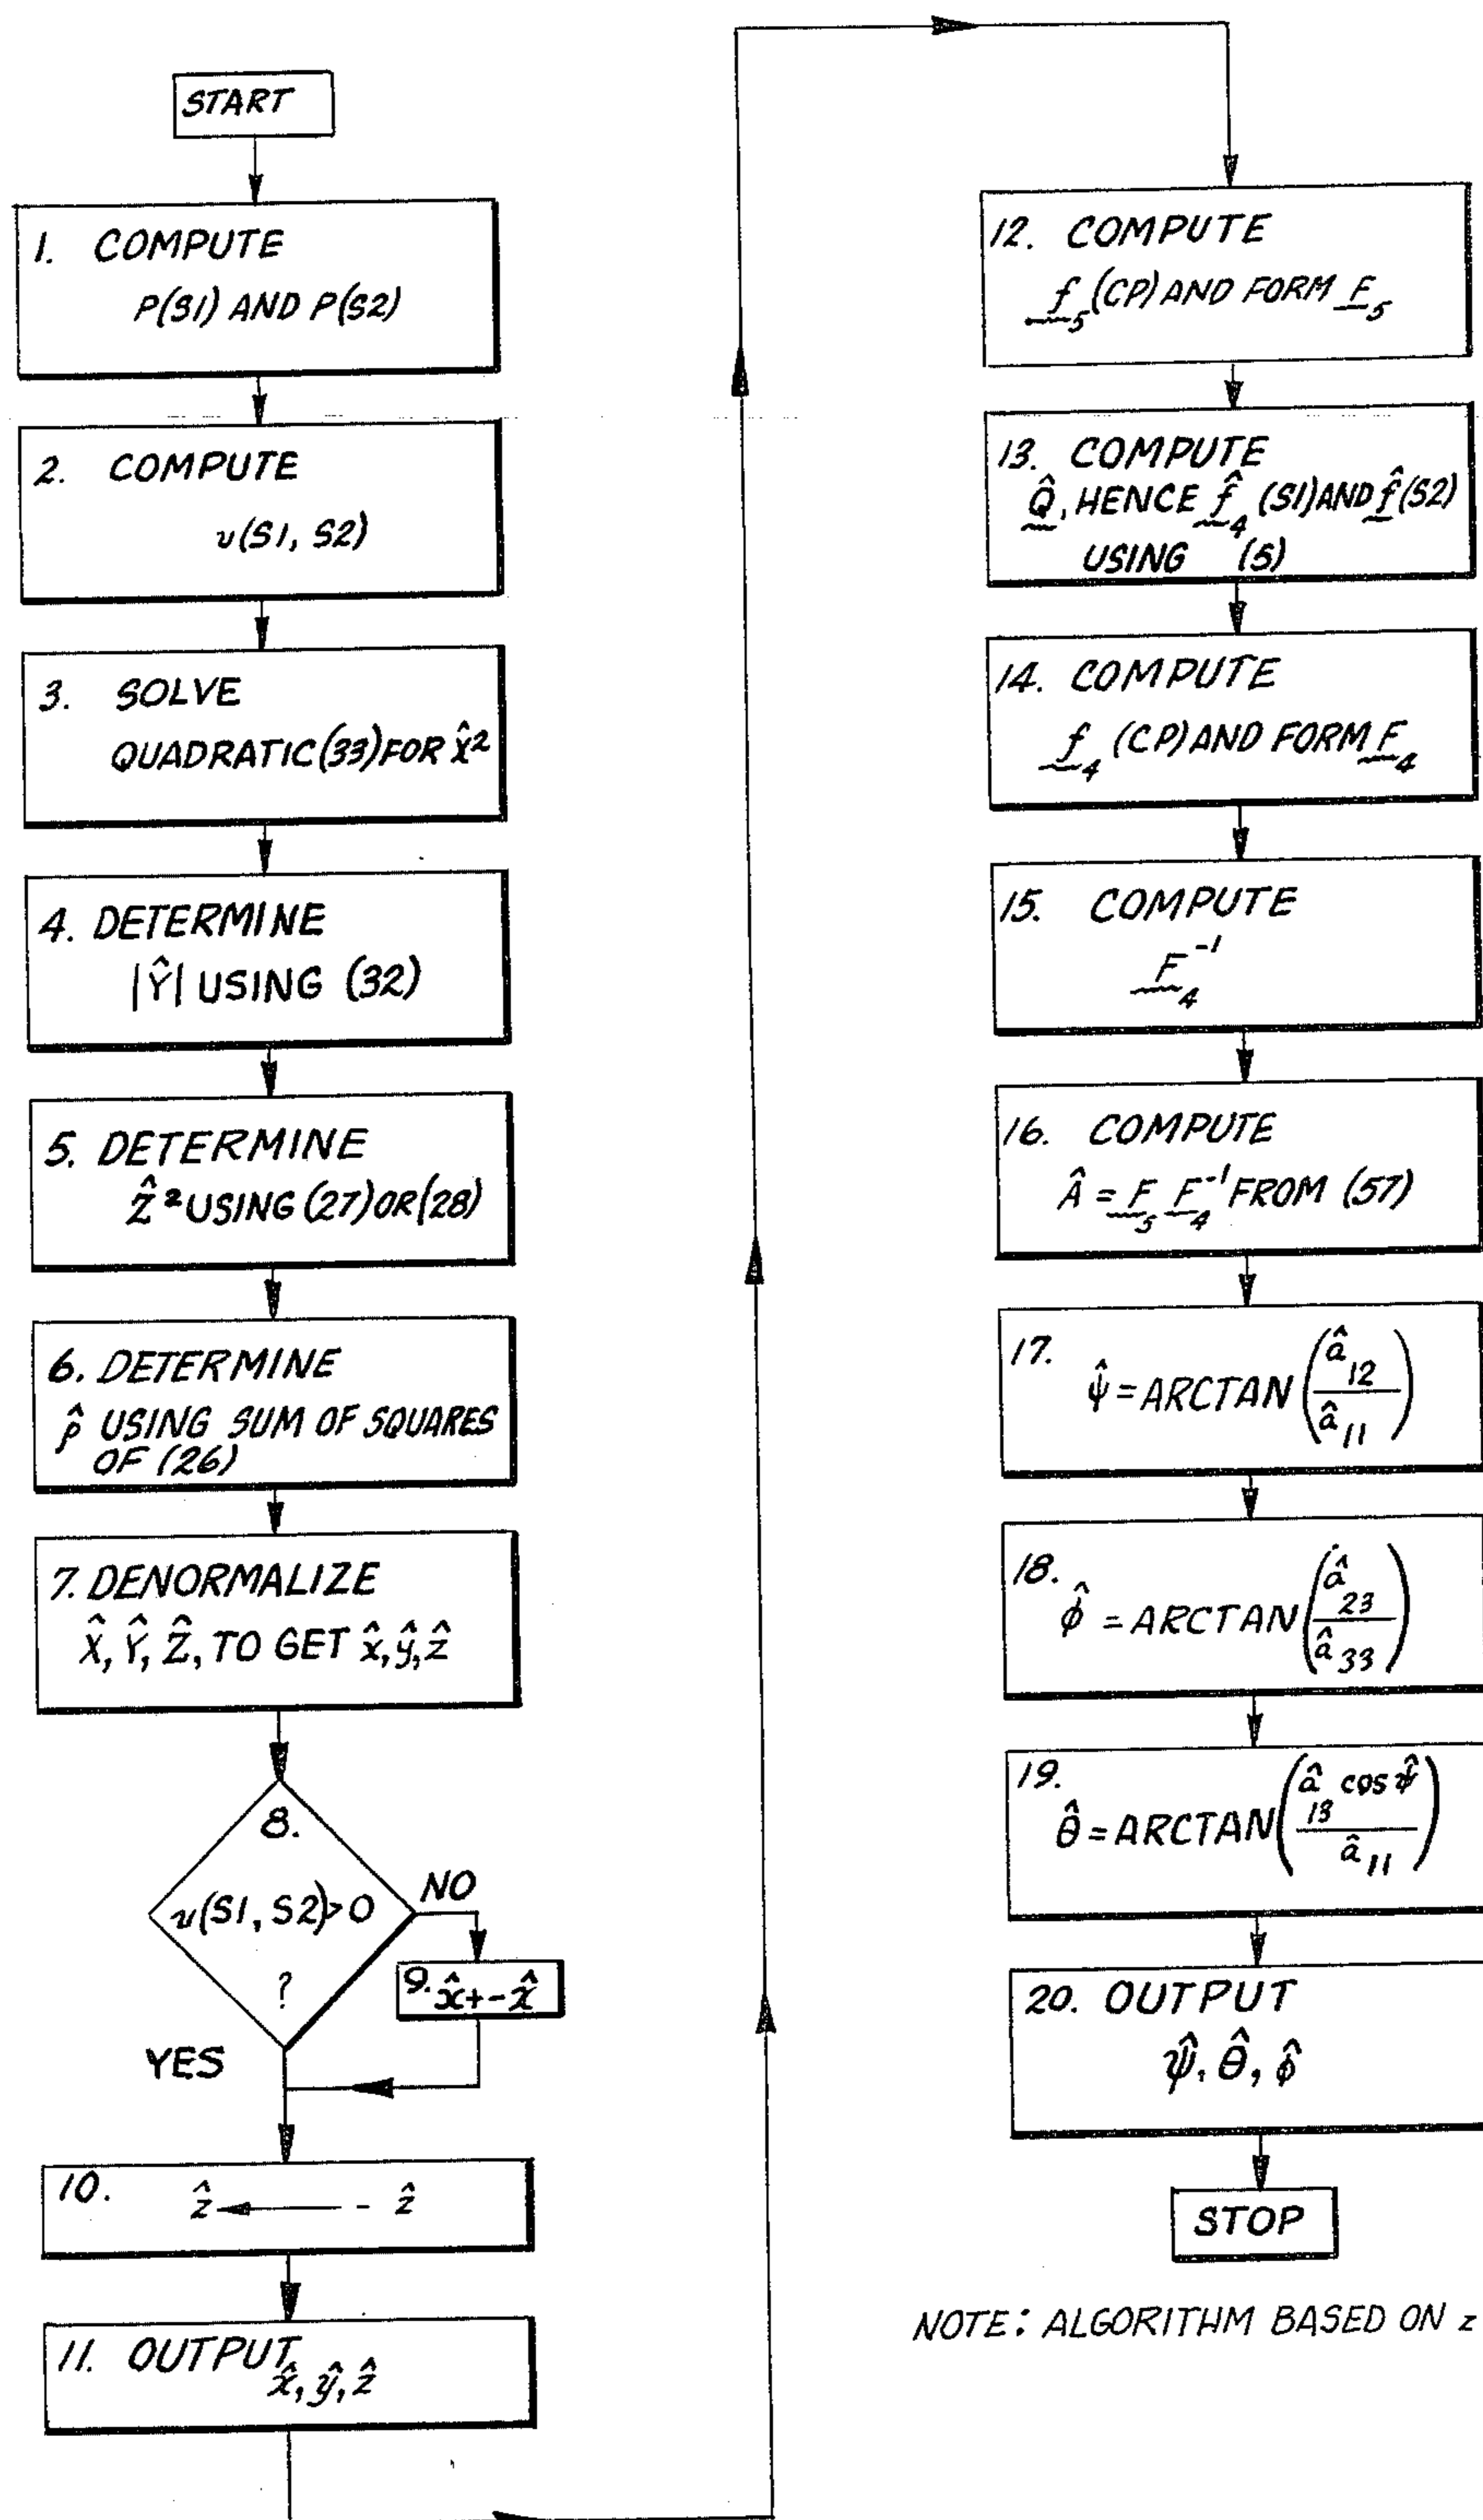 START
1. COMPUTE
P(S1) AND P(S2)
2. COMPUTE
v(S1, S2)
3. SOLVE
QUADRATIC (33) FOR X̂²
4. DETERMINE
|Ŷ| USING (32)
5. DETERMINE
Ẑ² USING (27) OR (28)
6. DETERMINE
ρ̂ USING SUM OF SQUARES
OF (26)
7. DENORMALIZE
X̂, Ŷ, Ẑ, TO GET x̂, ŷ, ẑ
8.
v(S1, S2)>0
?
NO
9. x̂ ← -x̂
YES
10. ẑ ← - ẑ
11. OUTPUT
x̂, ŷ, ẑ
12. COMPUTE
f₅ (CP) AND FORM F₅
13. COMPUTE
Q̂, HENCE f̂₄ (S1) AND f̂ (S2)
USING (5)
14. COMPUTE
f₄ (CP) AND FORM F₄
15. COMPUTE
F₄⁻¹
16. COMPUTE
Â = F₅ F₄⁻¹ FROM (57)
17. ψ̂ = ARCTAN (â₁₂ / â₁₁)
18. φ̂ = ARCTAN (â₂₃ / â₃₃)
19. θ̂ = ARCTAN (â₁₃ cos ψ̂ / â₁₁)
20. OUTPUT
ψ̂, θ̂, φ̂
STOP
NOTE: ALGORITHM BASED ON z